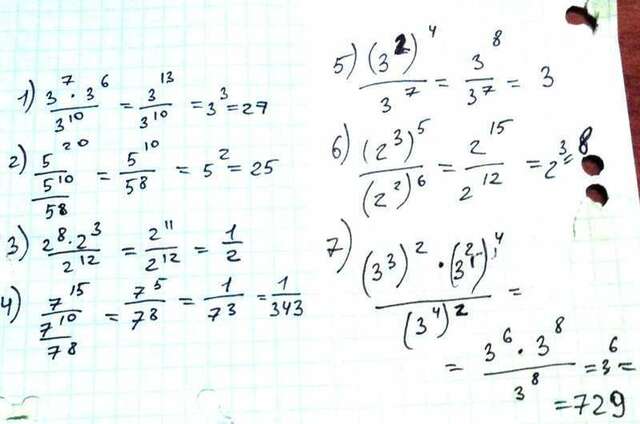 1) (3⁷ · 3⁶)/3¹⁰ = 3¹³/3¹⁰ = 3³ = 27
2) 5²⁰/5¹⁰/5⁸ = 5¹⁰/5⁸ = 5² = 25
3) (2⁸ · 2³)/2¹² = 2¹¹/2¹² = 1/2
4) 7¹⁵/7¹⁰/7⁸ = 7⁵/7⁸ = 1/7³ = 1/343
5) (3²)⁴/3⁷ = 3⁸/3⁷ = 3
6) (2³)⁵/(2²)⁶ = 2¹⁵/2¹² = 2³ = 8
7) ((3³)² · (3²)⁴)/(3⁴)² =
= (3⁶ · 3⁸)/3⁸ = 3⁶ =
= 729